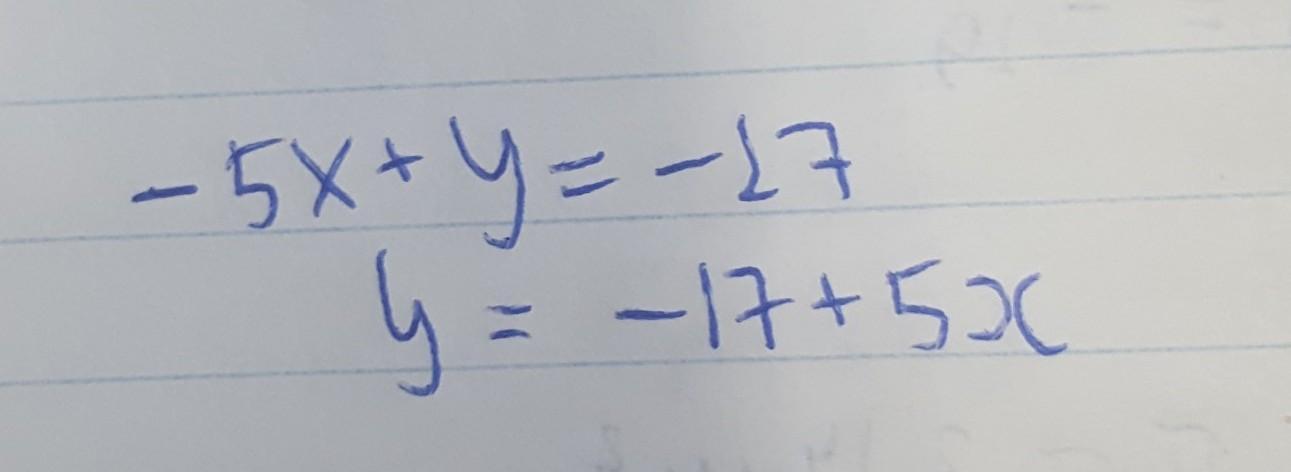 -5x+y=-17
y = -17+5x